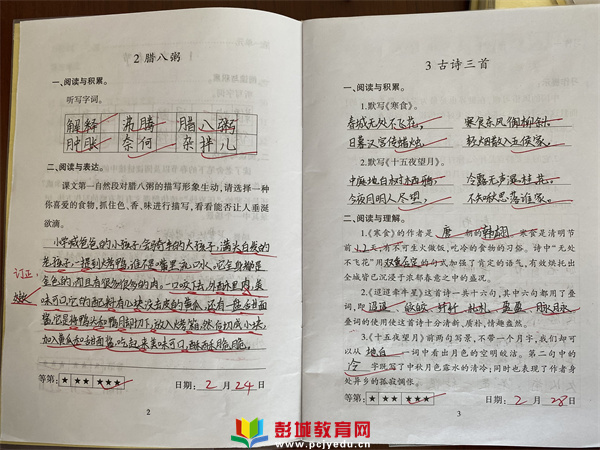 2 腊八粥
一、阅读与积累。
听写字词。
解释 沸腾 腊八粥
肿胀 奈何 杂拌儿
二、阅读与表达。
课文第一自然段对腊八粥的描写形象生动,请选择一种
你喜爱的食物,抓住色、香、味进行描写,看看能否让人垂涎
欲滴。
小学咸爸爸的小孩子,会骑竹马的大孩子,满头白发的
老孩子,一提到烤鸭,谁不是嘴里流口水,它全身都是
金色的,肉里有很多很多的肉。一口咬下去,外酥里肉,美
味可口,它的配料有小块
订正:
等第: ★ ★★ ★★★ 日期: 2 月 24 日
2
3 古诗三首
一、阅读与积累。
1.默写《寒食》。
春城无处不飞花, 寒食东风御柳斜。
日暮汉宫传蜡烛, 轻烟散入五侯家。
2.默写《十五夜望月》。
中庭地白树栖鸦, 冷露无声湿桂花。
今夜月明人尽望, 不知秋思落谁家。
二、阅读与理解。
1.《寒食》的作者是 唐 朝的 韩翃 。寒食是清明节
前1、2天,有不可生火做饭,吃冷食的物的习俗。诗中“无处
不飞花”用双重否定的方式加强了肯定的语气,有效烘托出
全城皆已沉浸于浓郁春意之中的盛况。
2.《迢迢牵牛星》这首诗一共十六句,其中六句都用了叠
词,即 迢迢 、皎皎、纤纤、札札、盈盈、脉脉。
叠词的使用使这首诗十分清新、质朴,情趣盎然。
3.《十五夜望月》前两句写景,不带一个月字,我们却可
以从 地白 一词中看出月色的空明皎洁。第二句中的
冷 字既写了中秋月色露水的清冷,同时也表现了作者身
处异乡的孤寂惆怅。
等第: ★ ★★ ★★★ 日期: 2 月 28 日
3
彭城教育网
www.pcjyedu.cn